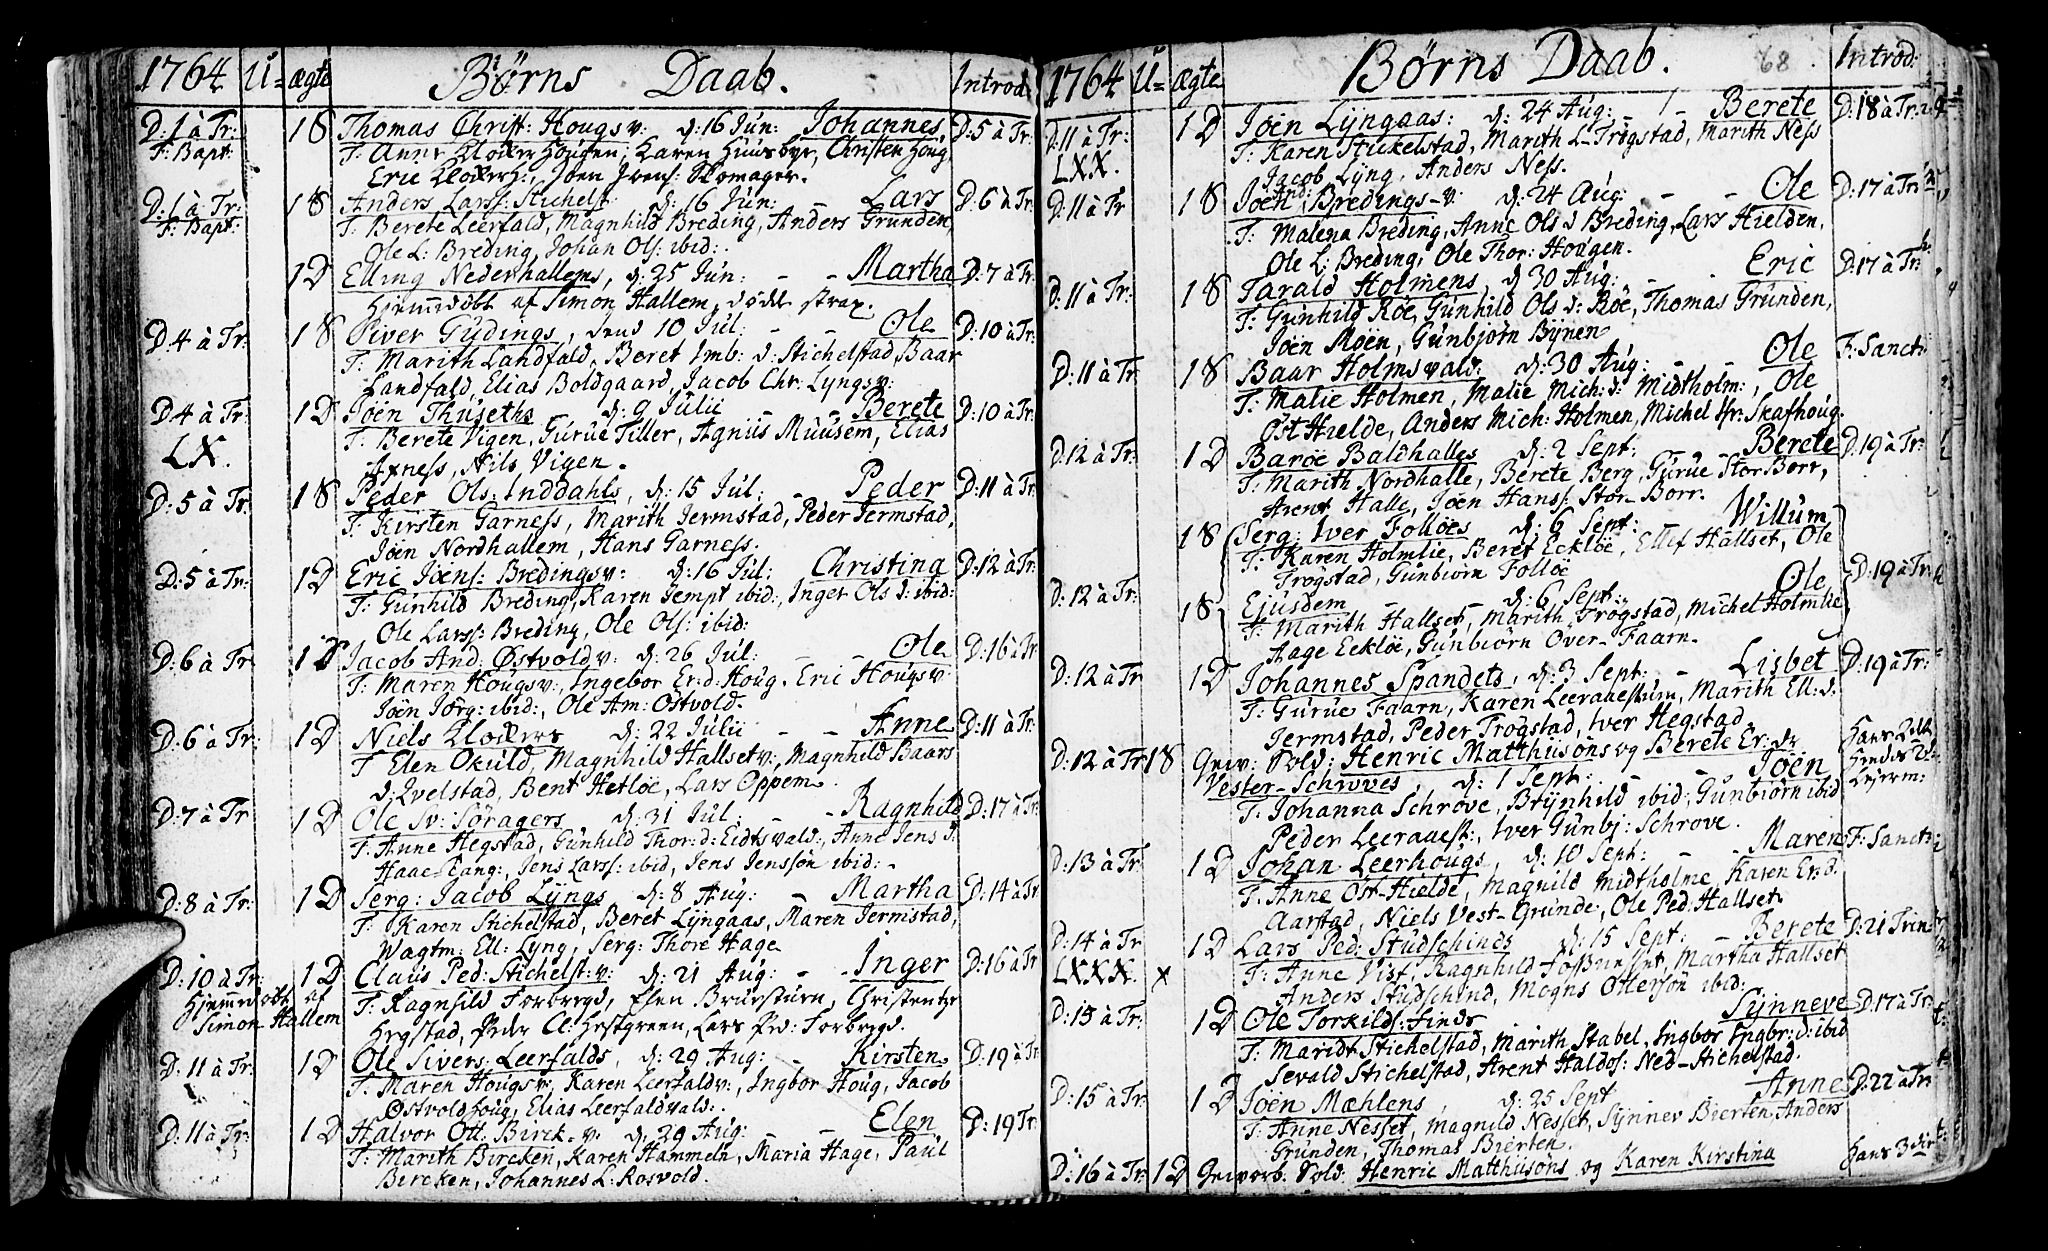 1764 U= Ægte Børns Daab. Introd:
D: 1 à Tr: 1 S Thomas Christ: Hougsv: d: 16 Jun: Johannes D: 5 à Tr:
F: Bapt: T: Anne Hougen, Karen Huusbye, Christen Houg
Eric Joen Jens: Slomager.
D: 1 à Tr: 1 S Anders Larss: Stichelst: d: 16 Jun: - Lars D: 6 à Tr:
F: Bapt: T: Berete Leerfald, Magnhild Breding, Anders Grunden,
Ole L: Breding, Johan Ols: ibid:
1 D Elling Nederhallems, d: 25 Jun: - - Martha D: 7 à Tr:
Hjemmedøbt af Simon Hallem, døde strax.
D: 4 à Tr: 1 S Siver Gudings, dend 10 Jul: - - Ole D: 10 à Tr:
T: Marith Landfald, Beret Imb: d: Stichelstad, Baar
Landfald, Elias Boldgaard, Jacob Chr: Lyngsv:
D: 4 à Tr: 1 D Joen Thuseths d: 9 Julii - Berete D: 10 à Tr:
LX. T: Berete Vigen, Gurue Tiller, Agnus Muusem, Elias
Axness, Nils Vigen.
D: 5 à Tr: 1 S Peder Ols: Inddahls, d: 15 Jul: - Peder D: 11 à Tr:
T: Kirsten Garness, Marith Jermstad, Peder Jermstad,
Joen Nordhallem, Hans Garness.
D: 5 à Tr: 1 D Eric Joens: Bredingsv: d: 16 Jul: Christina D: 12 à Tr:
T: Gunhild Breding, Karen Tempt ibid:, Inger Ols d: ibid:
Ole Larss: Breding, Ole Ols: ibid:
D: 6 à Tr 1 D Jacob And: Østvoldv: d: 26 Jul: - - Ole D: 16 à Tr
T: Maren Hougsv:, Ingebor Er: d: Houg. Eric Hougsv:
Joen Jørg: ibid:, Ole Am: Østvold.
D: 6 à Tr: 1 D Niels d: 22 Julii - - Anne D: 11 à Tr:
T Elen Okuld, Magnhild Hallsetv:, Magnhild Baars
d: Evelstad, Bent Hetløe, Lars Oppem.
D: 7 à Tr 1 D Ole Sv: Søragers d: 31 Jul: - - Ragnhild D: 17 à Tr:
T: Anne Hegstad, Gunhild Thor: d: Eidtsvald:, Anne Jens d:
Jens Larss: ibid, Jens Jenssøn ibid: -
D: 8 à Tr: 1 D Serg: Jacob Lyngs d: 8 Aug: - Martha D: 14 à Tr
T: Karen Stichelstad, Beret Lyngaas, Maren Jermstad,
Wagtm: Ell: Lyng, Serg: Thore Hage
D: 10 à Tr: 1 D Claus Ped: Stichelst: v: d: 21 Aug: - - Inger D: 16 à Tr
Hjemmedøbt af T: Ragnhild Forbregd, Elen Brursturn, Christentze
Simon Hallem Hegstad, Peder Cl: Hestgreen, Lars Ped: Forbregd.
D: 11 à Tr: 1 D Ole Sivers: Leerfalds, d: 29 Aug: - Kirsten D: 19 à Tr
T: Maren Hougsv:, Karen Leerfaldv:, Ingbor Houg, Jacob
Østvold Houg, Elias Leerfaldvald:.
D: 11 à Tr: 1 D Halvor Ott: Birck. v: d: 29 Aug: - - Elen D: 19 Tr:
T: Marith Bircken, Karen Hammeln, Maria Hage, Paul
Bircken, Johannes L: Rosvold.
1764 U= Ægte Børns Daab. 68 Introd:
D: 11 à Tr: 1 D Joen Lyngaas: d: 24 Aug: - Berete D: 18 à Tr:
LXX. T: Karen Stickelstad, Marith L- Trøgstad, Marith Ness
Jacob Lyng, Anders Ness.
D: 11 à Tr 1 S Joen And: Bredings-v: d: 24 Aug: - - Ole D: 17 à Tr:
T: Malena Breding, Anne Ols d Breding, Lars Hielden,
Ole L: Breding, Ole Thor: Hougen.
D: 11 à Tr: 1 S Tarald Holmens, d: 30 Aug: - - Eric D: 17 à Tr:
T: Gunhild Røe, Gunhild Ols d: Røe, Thomas Grunden,
Joen Møen, Gunbjørn Bynen
D: 11 à Tr 1 S Baar Holmsvald: d: 30 Aug: - - Ole F: Sanct:
T: Malie Holmen, Malie Mich: d: Midtholm:, Ole
Øst Hielde, Anders Mich: Holmen, Michel Skafhoug.
D: 12 à Tr: 1 D Baroe Baldhalles d: 2 Sept: - Berete D: 19 à Tr:
T: Marith Nordhalle, Berete Berg, Gurue Stor Borr,
Arent Halle, Joen Hans: Stor-Borr.
1 S Serg: Iver Folloes d: 6 Sept: Willum
T: Karen Holmlie, Beret Eckløe, Ellef Hallset, Ole
Trøgstad, Gunbiørn Folloe
D: 12 à Tr: 1 S Ejusdem d: 6 Sept: Ole D: 19 à Tr:
T: Marith Hallset, Marith Trøgstad, Michel Holmlie
Aage Eckløe, Gunbiørn Over-Faarn.
D: 12 à Tr 1 D Johannes Spandets, d: 3 Sept: - Lisbet D: 19 à Tr:
T: Gurue Faarn, Karen Leeraaestum, Marith Ell: d:
Jermstad, Peder Trøgstad, Iver Hegstad.
D: 12 à Tr 1 S Geiv: Sold: Henric Matthusøns og Berete Er: d: Hans 2det
Vester-Schroves, d: 1 Sept: - - Joen Hendes Leierm:
T: Johanna Schrove, Brynhild ibid:, Gunbiørn ibid
Peder Leeraaest:, Iver Gunbj: Schrove.
D: 13 à Tr: 1 D Johan Leerhougs, d: 10 Sept: - - Maren F: Sanct:
T: Anne Øst-Hielde, Magnild Midtholme, Karen Er: d:
Aarstad, Niels Vest-Grunde, Ole Ped: Hallset.
D: 14 à Tr 1 D Lars Ped: Studschinds d: 15 Sept: - Berete D: 21 Trin:
LXXX. x T: Anne Vist, Ragnhild Martha Hallset
Anders Studschind, Mogns Ottersøn ibid:
D: 15 à Tr: 1 D Ole Torkilds: Finds Synneve D: 17 à Tr:
T: Maridt Stichelstad, Marith Stabel, Ingbor Engbr: d: ibid
Sevald Stichelstad, Arent Haldos: Ned-Stichelstad.
D: 15 à Tr: 1 D Joen Mæhlens, d: 25 Sept Anne D: 22 à Tr:
T: Anne Nesset, Magnild Nesset, Synnev Bierten, Anders
Grunden, Thomas Bierten.
D: 16 à Tr: 1 D Geworb. Sold: Henric Matthusøns og Karen Kirstina Hans 3die